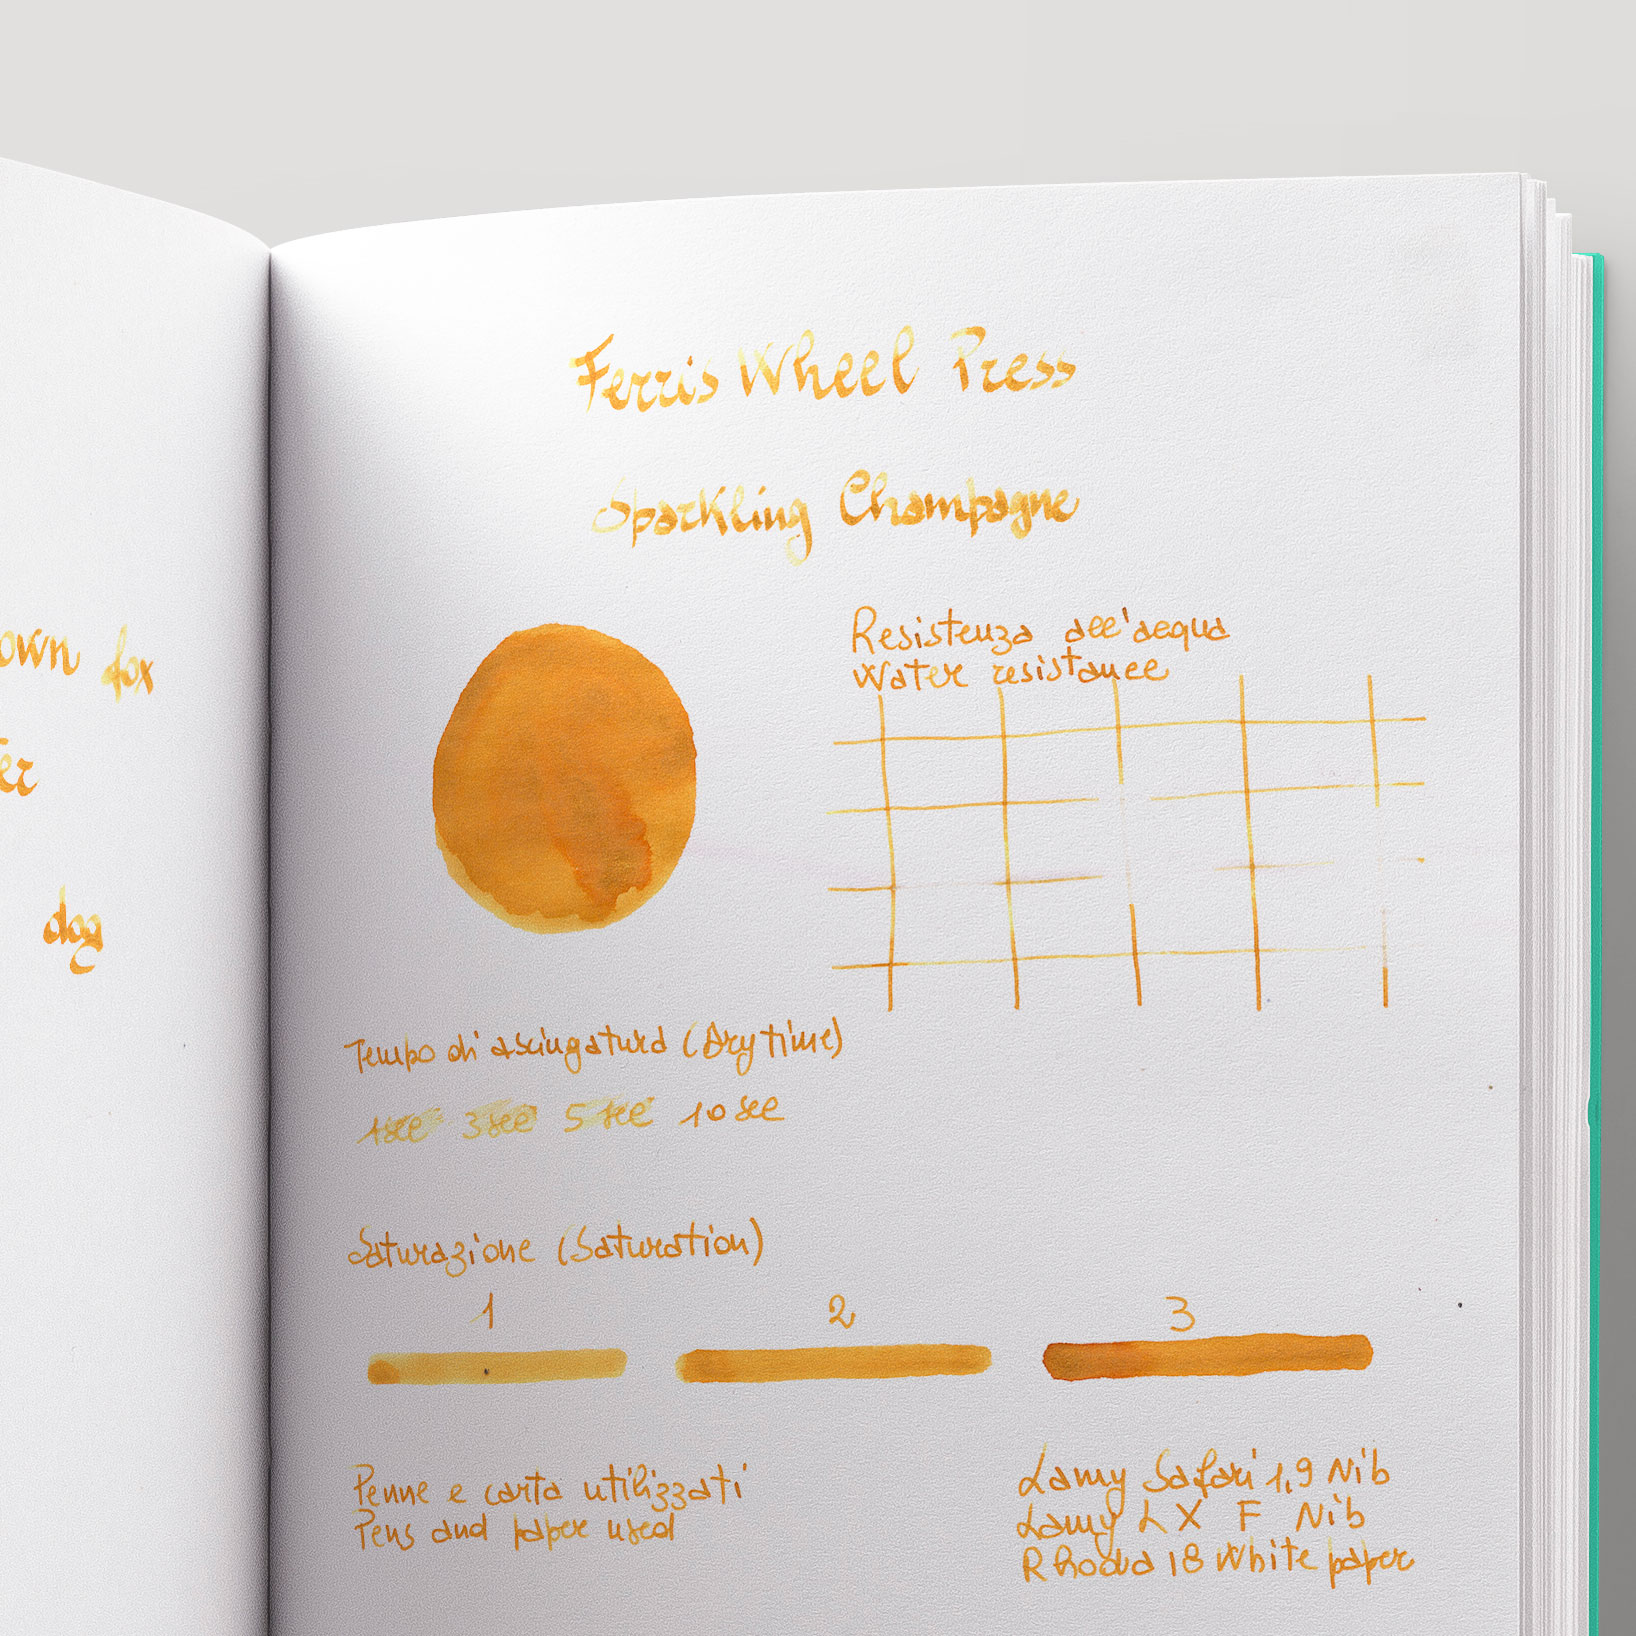 own fox
er
dog
Ferris Wheel Press
Sparkling Champagne
Resistenza all'acqua
Water resistance
Tempo di asciugatura (Dry time)
1sec 3sec 5sec 10sec
Saturazione (Saturation)
1 2 3
Penne e carta utilizzati
Pens and paper used
Lamy Safari 1,9 Nib
Lamy LX F Nib
Rhodia 18 White paper